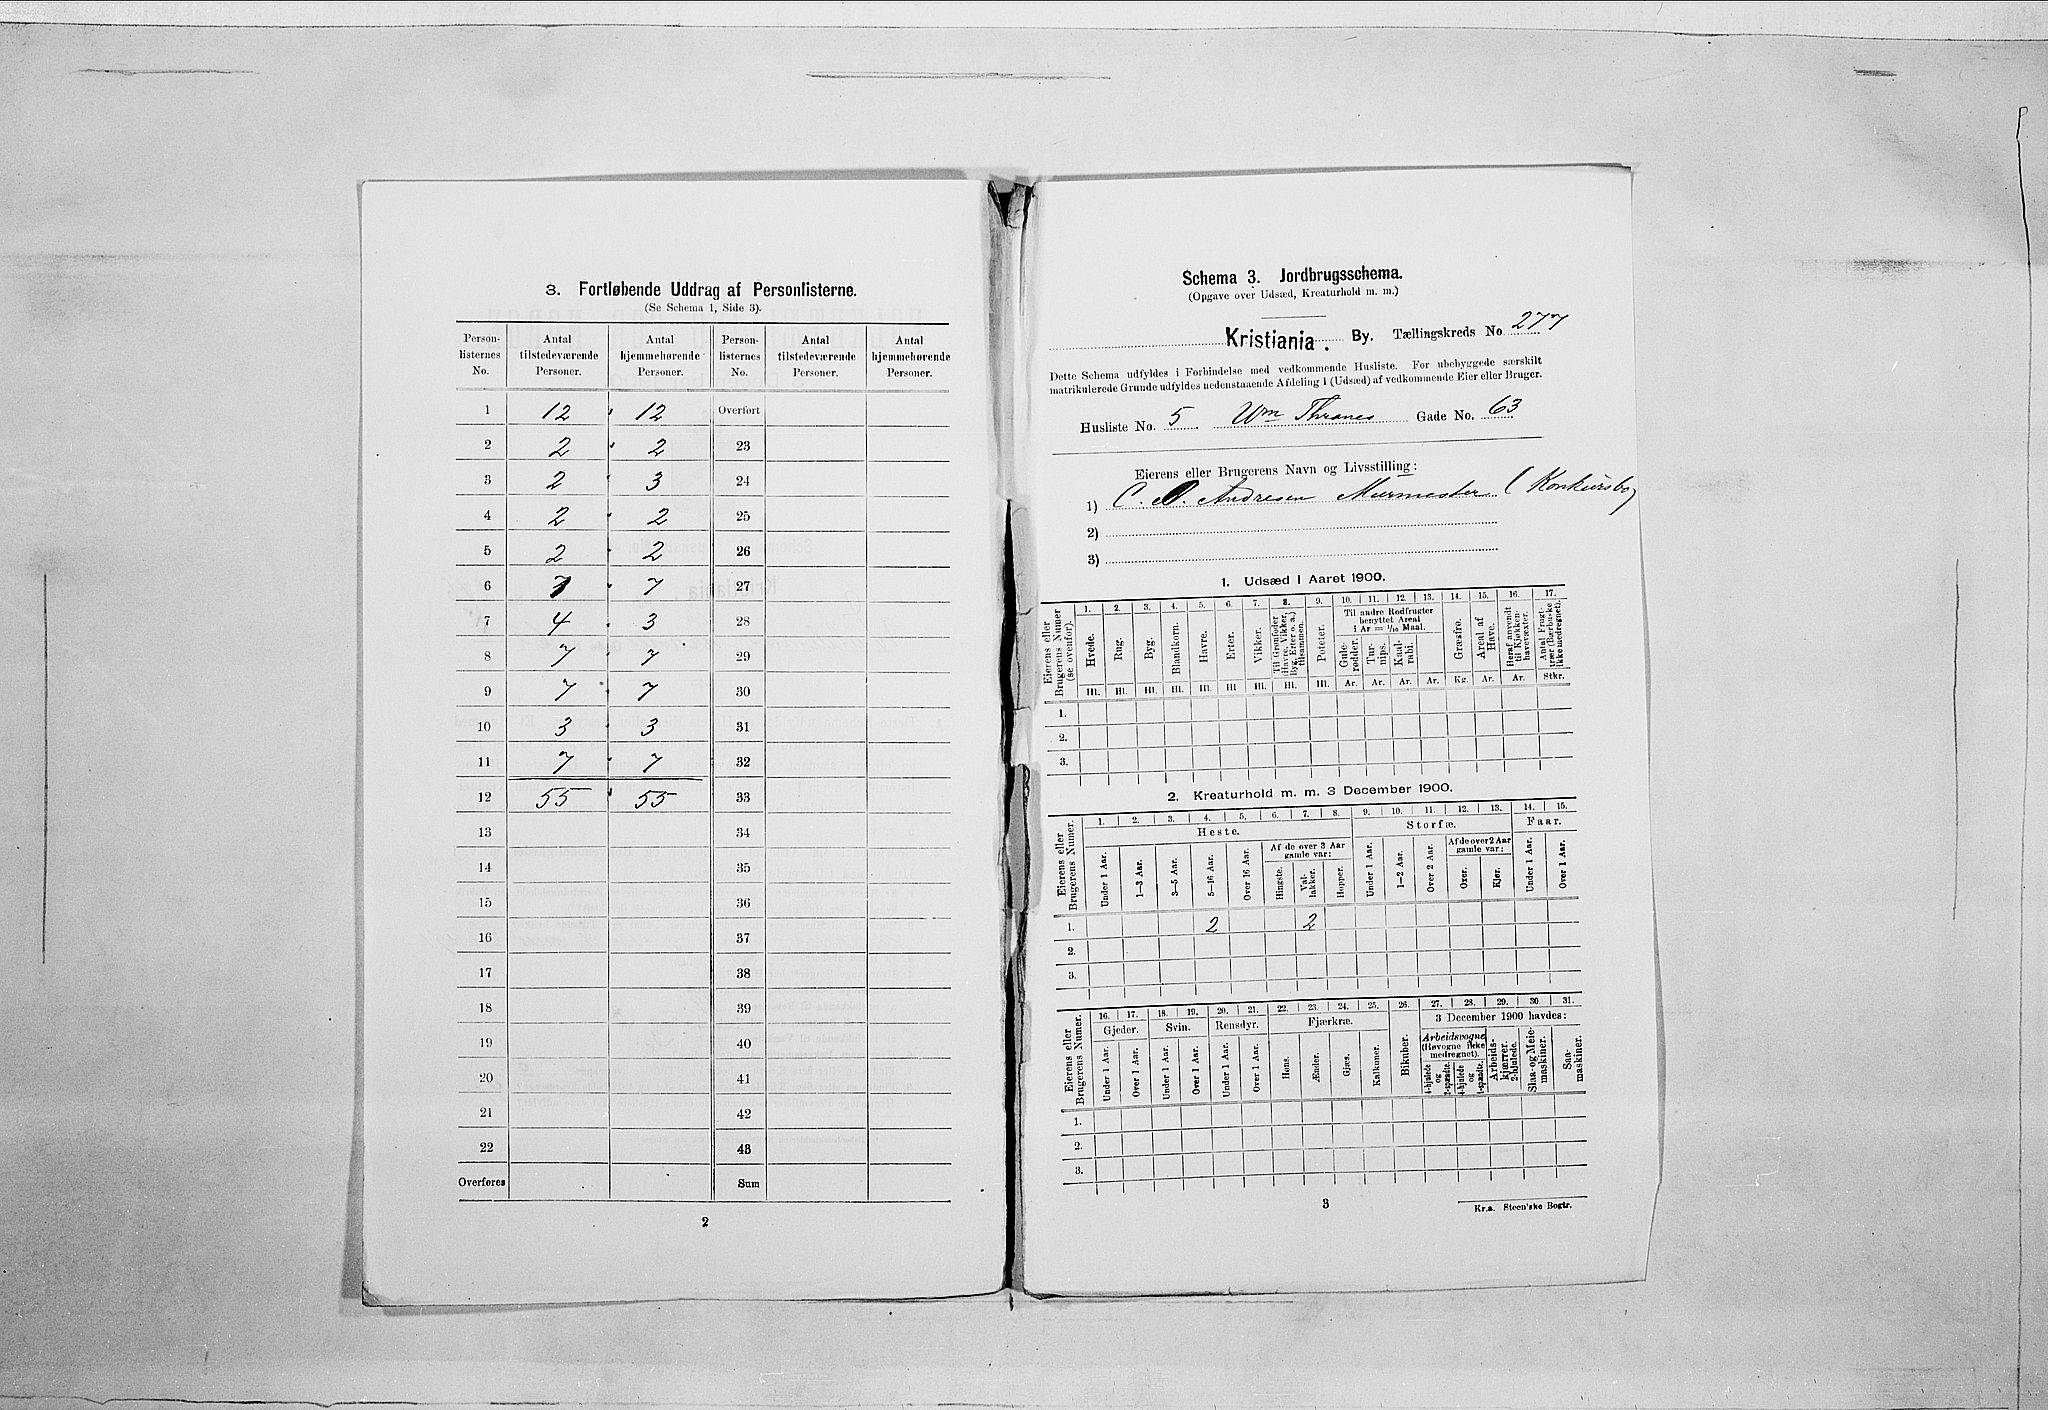 3. Fortløbende Uddrag af Personlisterne.
(Se Schema 1, Side 3).
Person-listernes No. | Antal tilstedeværende Personer. | Antal hjemmehørende Personer. | Person-listernes No. | Antal tilstedeværende Personer. | Antal hjemmehørende Personer.
1 12 12 Overført
2 2 2 23
3 2 3 24
4 2 2 25
5 2 2 26
6 7 7 27
7 4 3 28
8 7 7 29
9 7 7 30
10 3 3 31
11 7 7 32
12 55 55 33
13 34
14 35
15 36
16 37
17 38
18 39
19 40
20 41
21 42
22 43
Overføres Sum
2
Schema 3. Jordbrugsschema.
(Opgave over Udsæd, Kreaturhold m. m.)
Kristiania. By. Tællingskreds No 277
Dette Schema udfyldes i Forbindelse med vedkommende Husliste. For ubebyggede særskilt
matrikulerede Grunde udfyldes nedenstaaende Afdeling 1 (Udsæd) af vedkommende Eier eller Bruger.
Husliste No. 5 Wm Thranes Gade No. 63
Eierens eller Brugerens Navn og Livsstilling:
1) C. Andresen Murmester (Konkursbo)
2)
3)
1. Udsæd i Aaret 1900.
Eierens eller Brugerens Numer (se ovenfor).
1. 2. 3. 4. 5. 6. 7. 8. 9. 10. 11. 12. 13. 14. 15. 16. 17.
Til andre Rodfrugter benyttet Areal i Ar = 1/10 Maal.
Hvede. Rug. Byg. Blandkorn. Havre. Erter. Vikker. Til Grønfoder (Havre, Vikker, Byg, Erter o. a.) tilsammen. Poteter. Gule-rødder. Tur-nips. Kaal-rabi. Græsfrø. Areal af Have. Heraf anvendt til Kjøkken-havevæxter. Antal Frugt-trær (Bærbuske ikke medregnet).
Hl. Hl. Hl. Hl. Hl. Hl. Hl. Hl. Hl. Ar. Ar. Ar. Ar. Kg. Ar. Ar. Stkr.
1.
2.
3.
2. Kreaturhold m. m. 3 December 1900.
Eierens eller Brugerens Numer.
1. 2. 3. 4. 5. 6. 7. 8. 9. 10. 11. 12. 13. 14. 15.
Heste. Storfæ. Faar.
Af de over 3 Aar gamle var: Af de over 2 Aar gamle var:
Under 1 Aar. 1–3 Aar. 3–5 Aar. 5–16 Aar. Over 16 Aar. Hingste. Val-lakker. Hopper. Under 1 Aar. 1–2 Aar. Over 2 Aar. Oxer. Kjør. Under 1 Aar. Over 1 Aar.
1. 2 2
2.
3.
Eierens eller Brugerens Numer.
16. 17. 18. 19. 20. 21. 22. 23. 24. 25. 26. 27. 28. 29. 30. 31.
Gjeder. Svin. Rensdyr. Fjærkræ. Bikuber. 3 December 1900 havdes:
Arbeidsvogne (Høvogne ikke medregnet).
Under 1 Aar. Over 1 Aar. Under 1 Aar. Over 1 Aar. Under 1 Aar. Over 1 Aar. Høns. Ænder. Gjæs. Kalkuner. 4-hjulede og 2-spændte. 4-hjulede og 1-spændte. Arbeids-kjærrer 2-hjulede. Slaa- og Meie-maskiner. Saa-maskiner.
1.
2.
3.
3
Kr.a. Steen'ske Bogtr.